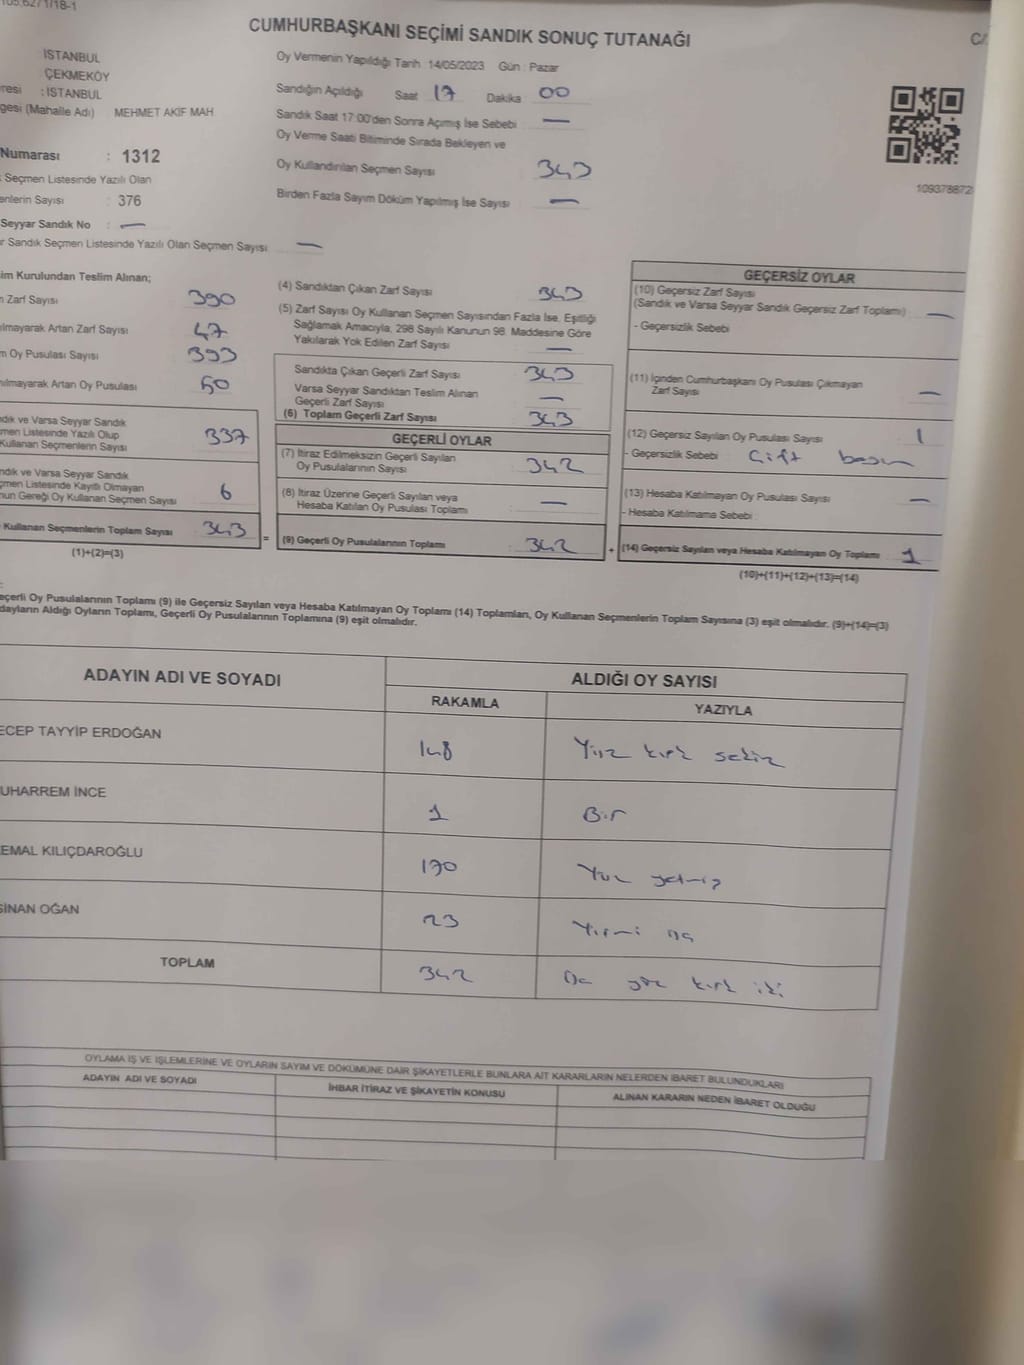 105.6271/18-1
CUMHURBAŞKANI SEÇİMİ SANDIK SONUÇ TUTANAĞI
C/
İSTANBUL
ÇEKMEKÖY
resi : İSTANBUL
gesi (Mahalle Adı) MEHMET AKİF MAH
Numarası : 1312
Seçmen Listesinde Yazılı Olan
enlerin Sayısı : 376
Seyyar Sandık No : —
r Sandık Seçmen Listesinde Yazılı Olan Seçmen Sayısı —
Oy Vermenin Yapıldığı Tarih 14/05/2023 Gün : Pazar
Sandığın Açıldığı Saat 17 Dakika 00
Sandık Saat 17:00'den Sonra Açımış İse Sebebi —
Oy Verme Saati Bitiminde Sırada Bekleyen ve
Oy Kullandırılan Seçmen Sayısı 343
Birden Fazla Sayım Döküm Yapılmış İse Sayısı —
109378872
im Kurulundan Teslim Alınan;
n Zarf Sayısı 390
ılmayarak Artan Zarf Sayısı 47
m Oy Pusulası Sayısı 393
nılmayarak Artan Oy Pusulası 50
dık ve Varsa Seyyar Sandık
men Listesinde Yazılı Olup
Kullanan Seçmenlerin Sayısı 337
ndık ve Varsa Seyyar Sandık
çmen Listesinde Kayıtlı Olmayan
nun Gereği Oy Kullanan Seçmen Sayısı 6
Kullanan Seçmenlerin Toplam Sayısı 343 =
(1)+(2)=(3)
(4) Sandıktan Çıkan Zarf Sayısı 343
(5) Zarf Sayısı Oy Kullanan Seçmen Sayısından Fazla İse, Eşitliği
Sağlamak Amacıyla, 298 Sayılı Kanunun 98. Maddesine Göre
Yakılarak Yok Edilen Zarf Sayısı —
Sandıkta Çıkan Geçerli Zarf Sayısı 343
Varsa Seyyar Sandıktan Teslim Alınan
Geçerli Zarf Sayısı —
(6) Toplam Geçerli Zarf Sayısı 343
GEÇERLİ OYLAR
(7) İtiraz Edilmeksizin Geçerli Sayılan
Oy Pusulalarının Sayısı 342
(8) İtiraz Üzerine Geçerli Sayılan veya
Hesaba Katılan Oy Pusulası Toplamı —
(9) Geçerli Oy Pusulalarının Toplamı 342 +
GEÇERSİZ OYLAR
(10) Geçersiz Zarf Sayısı
(Sandık ve Varsa Seyyar Sandık Geçersiz Zarf Toplamı) —
- Geçersizlik Sebebi
(11) İçinden Cumhurbaşkanı Oy Pusulası Çıkmayan
Zarf Sayısı —
(12) Geçersiz Sayılan Oy Pusulası Sayısı 1
- Geçersizlik Sebebi Çift basım
(13) Hesaba Katılmayan Oy Pusulası Sayısı —
- Hesaba Katılmama Sebebi :
(14) Geçersiz Sayılan veya Hesaba Katılmayan Oy Toplamı 1
(10)+(11)+(12)+(13)=(14)
eçerli Oy Pusulalarının Toplamı (9) ile Geçersiz Sayılan veya Hesaba Katılmayan Oy Toplamı (14) Toplamları, Oy Kullanan Seçmenlerin Toplam Sayısına (3) eşit olmalıdır. (9)+(14)=(3)
dayların Aldığı Oyların Toplamı, Geçerli Oy Pusulalarının Toplamına (9) eşit olmalıdır.
ADAYIN ADI VE SOYADI
ALDIĞI OY SAYISI
RAKAMLA YAZIYLA
ECEP TAYYİP ERDOĞAN 148 Yüz kırk sekiz
UHARREM İNCE 1 Bir
EMAL KILIÇDAROĞLU 170 Yüz yetmiş
SİNAN OĞAN 23 Yirmi üç
TOPLAM 342 Üç yüz kırk iki
OYLAMA İŞ VE İŞLEMLERİNE VE OYLARIN SAYIM VE DÖKÜMÜNE DAİR ŞİKAYETLERLE BUNLARA AİT KARARLARIN NELERDEN İBARET BULUNDUKLARI
ADAYIN ADI VE SOYADI İHBAR İTİRAZ VE ŞİKAYETİN KONUSU ALINAN KARARIN NEDEN İBARET OLDUĞU